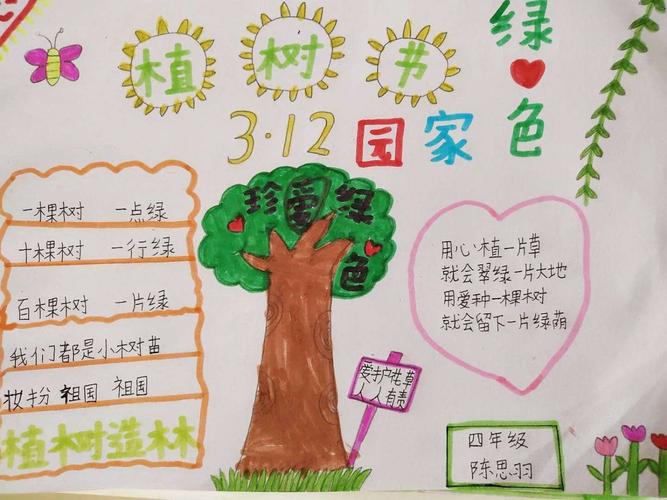 植树节
3·12
绿
色
园家
珍爱绿
色
一棵树 一点绿
十棵树 一行绿
百棵树 一片绿
我们都是小树苗
妆扮 祖国 祖国
植树造林
用心植一片草
就会翠绿一片大地
用爱种一棵树
就会留下一片绿荫
爱护花草
人人有责
四年级
陈思羽